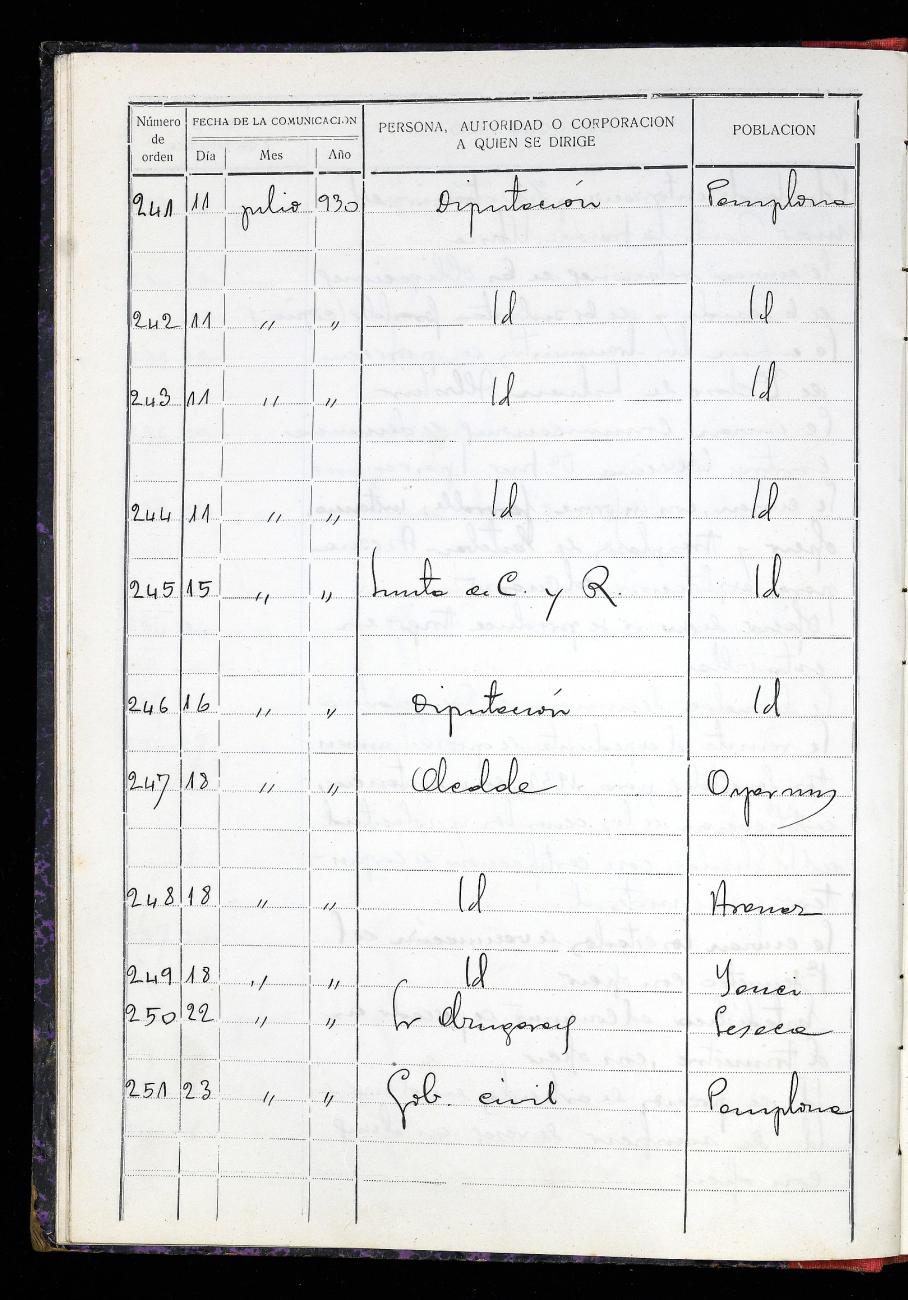 Número de orden FECHA DE LA COMUNICACION PERSONA, AUTORIDAD O CORPORACION A QUIEN SE DIRIGE POBLACION
Día Mes Año
241 11 julio 930 Diputación Pamplona
242 11 〃 〃 Id Id
243 11 〃 〃 Id Id
244 11 〃 〃 Id Id
245 15 〃 〃 Junta de C. y R. Id
246 16 〃 〃 Diputación Id
247 18 〃 〃 Alcalde Oyarzun
248 18 〃 〃 Id Aranaz
249 18 〃 〃 Id Yanci
250 22 〃 〃 Sr Lesaca
251 23 〃 〃 Gob. civil Pamplona